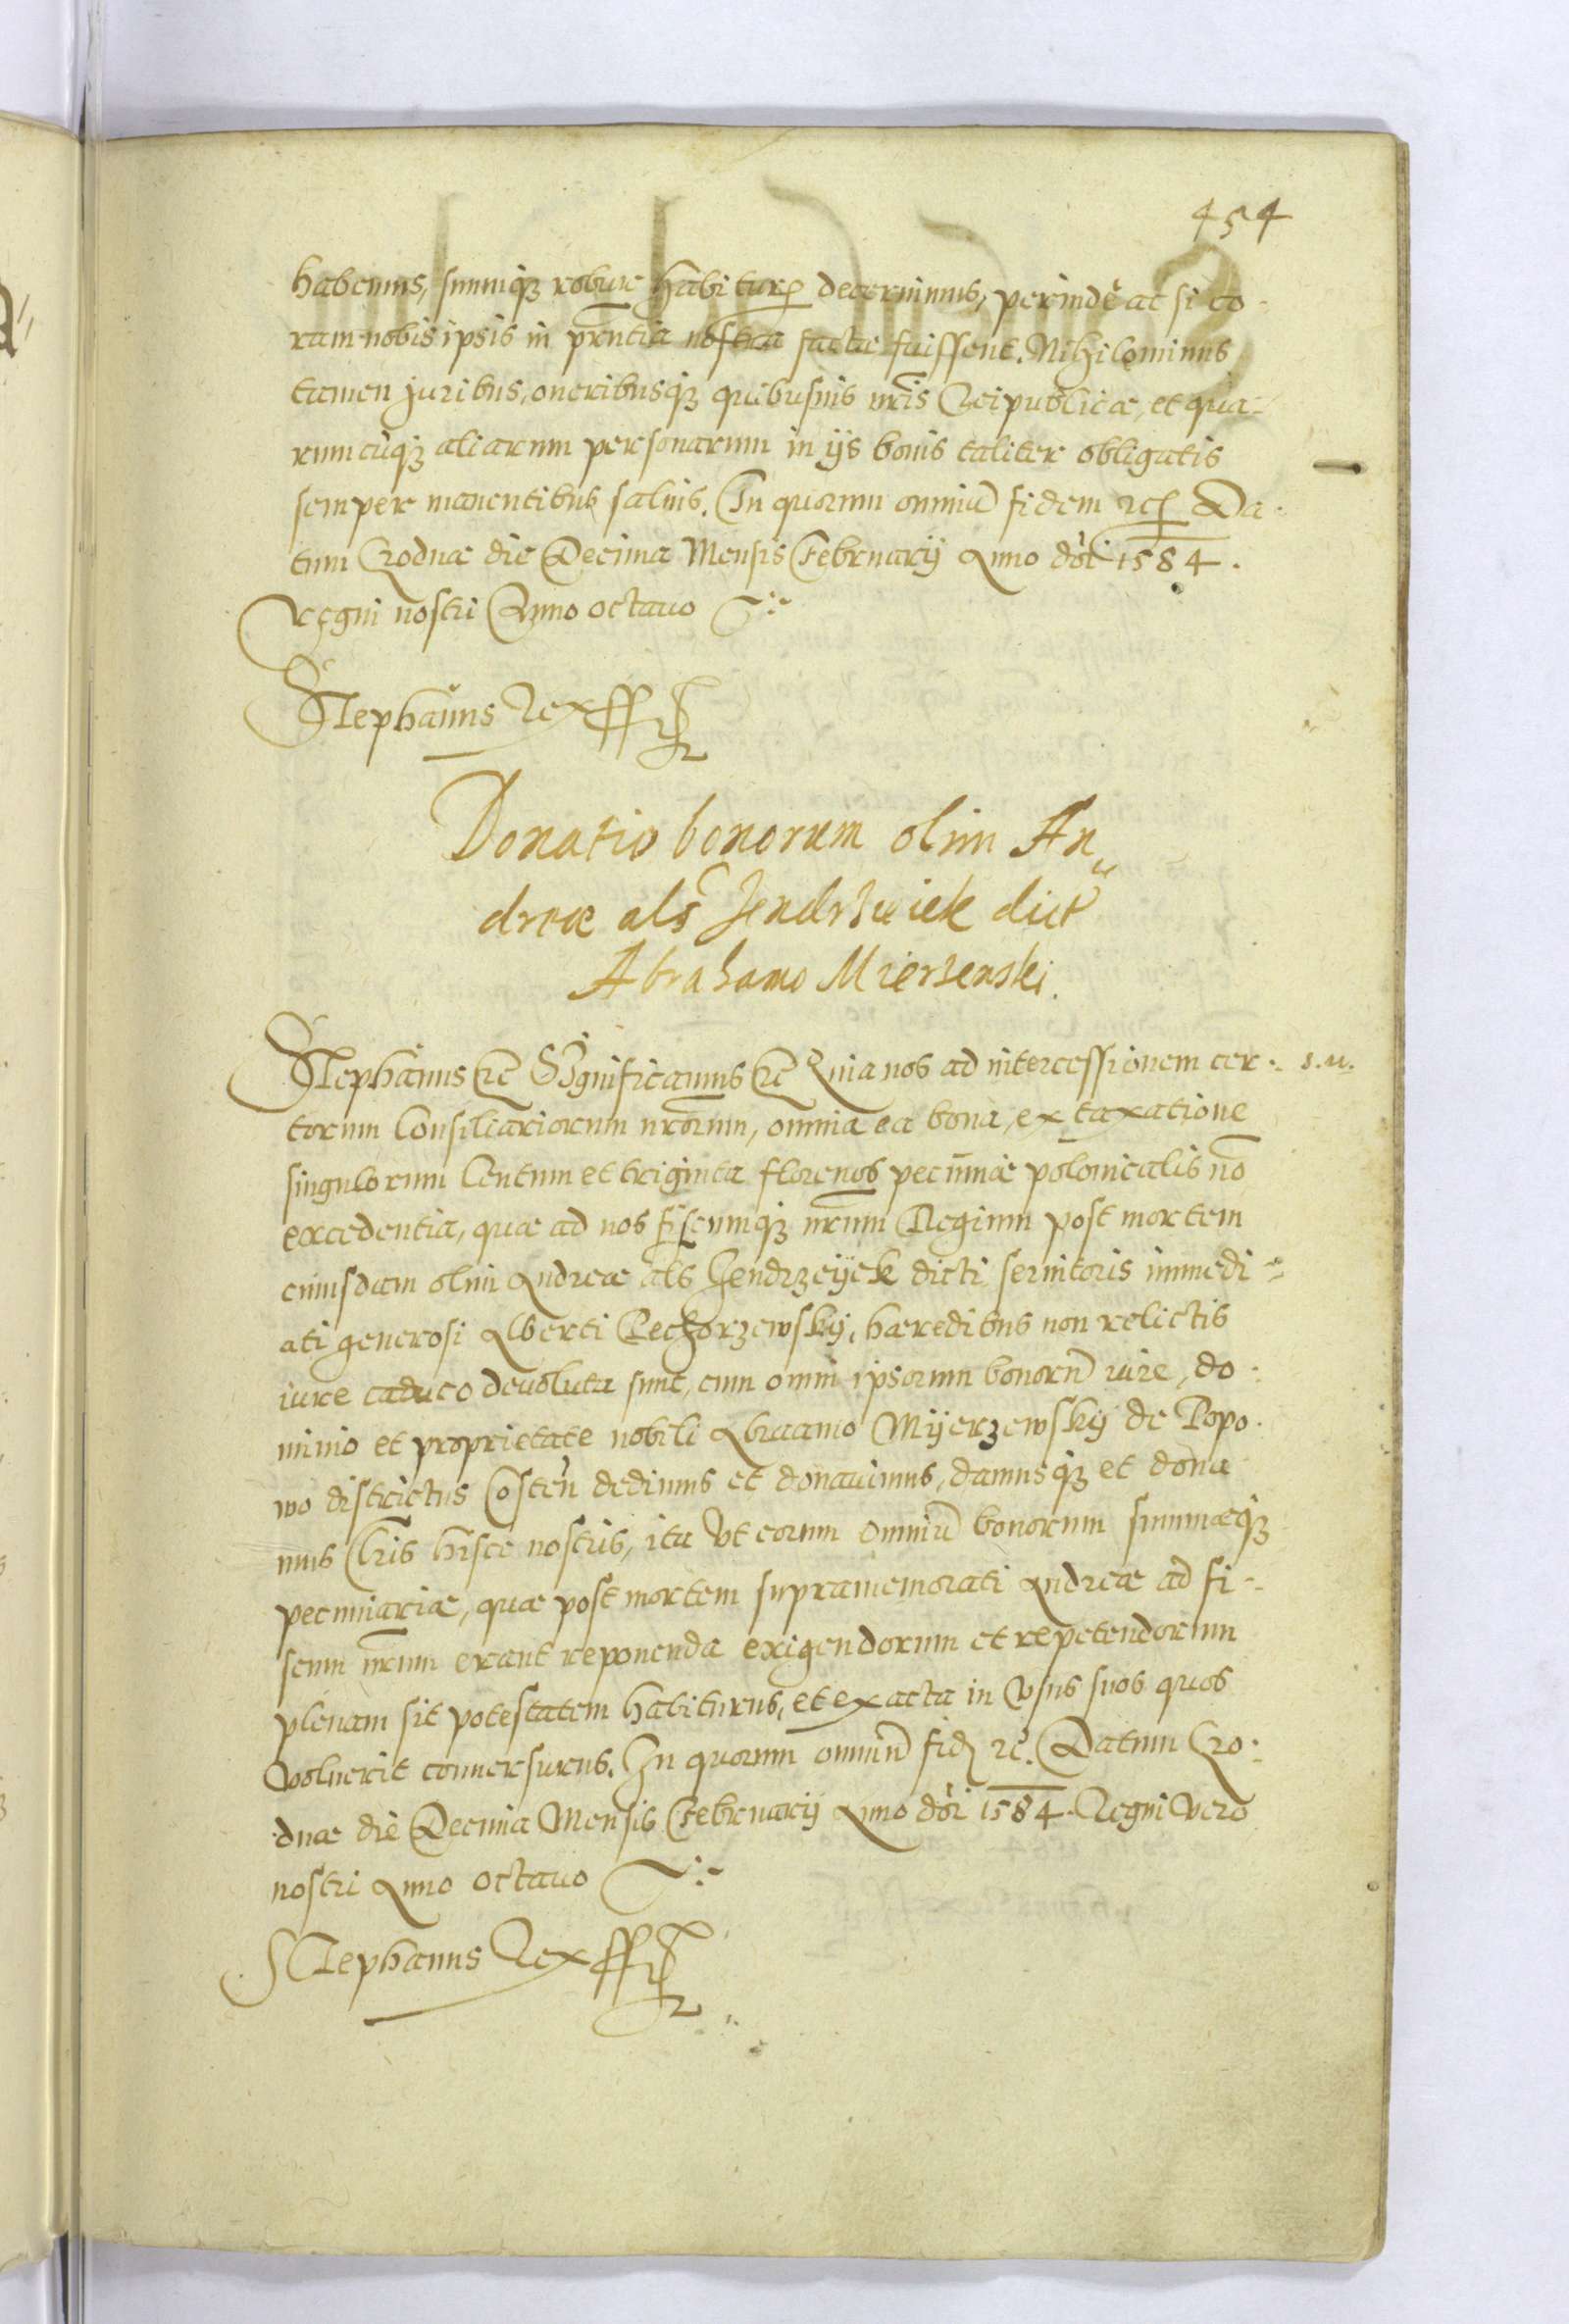 454
habemus, suumq₃ robur habitur decernimus, perinde ac si co-
ram nobis ipsis in prntia nostra factae fuissent. Nihilominus
tamen juribus, oneribusq₃ quibusuis nris Reipublicae, et qua-
rumcuq₃ aliarum personarum in ijs bonis taliter obligatis
semper manentibus saluis. In quorum omniu fidem etc. Da-
tum Grodnae die Decima Mensis Februarij Anno dni 1584.
Regni nostri Anno octauo
Stephanus Rex sst
Donatio bonorum olim An„
dreae als Jendrzeiek dict
Abrahamo Mierzenski.
Stephanus etc Significamus etc Quia nos ad intercessionem cer- s. n.
torum Consiliariorum nrorum, omnia ea bona, ex taxatione
singulorum Centum et triginta florenos pecuniae polonicalis no
excedentia, quae ad nos fiscumq₃ nrum Regium post mortem
cuiusdam olim Andreae als Jendrzeijek dicti seruitoris immedi-
ati generosi Alberti Rechorzewskij, haeredibus non relictis
iure caduco deuoluta sunt, cum omni ipsorum bonoru iure, do-
minio et proprietate nobili Abraamo Mijerzewskij de Popo-
wo districtus Costen dedimus et donauimus, damusq₃ et dona-
mus Lris hisce nostris, ita Vt eorum omniu bonorum summaeq₃
pecuniariae, quae post mortem supramemorati Andreae ad fi-
scum nrum erant reponenda exigendorum et repetendorum
plenam sit potestatem habiturus, et exacta in Vsus suos quos
Voluerit conuersurus. In quorum omniu fid etc. Datum Gro-
dnae die Decima Mensis Februarij Anno dni 1584. Regni vero
nostri Anno octauo
Stephanus Rex sst